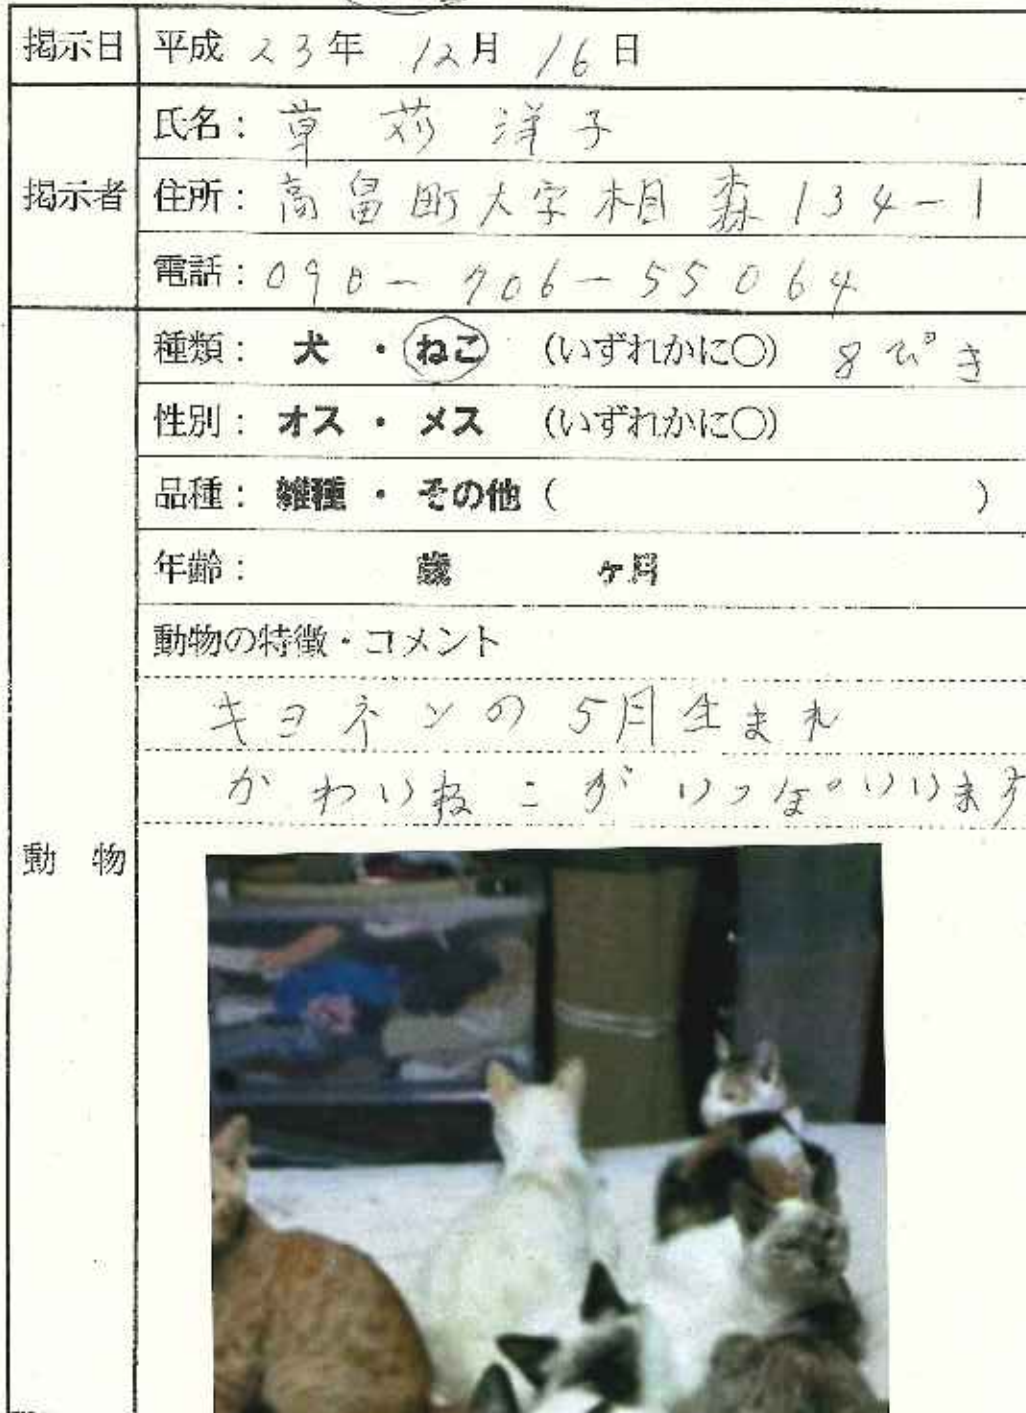 掲示日 平成 23年 12月 16日
掲示者
氏名: 草苅洋子
住所: 高畠町大字相森134-1
電話: 090-706-55064
動物
種類: 犬 ・ ねこ (いずれかに〇) 8ぴき
性別: オス ・ メス (いずれかに〇)
品種: 雑種 ・ その他 ( )
年齢: 歳 ヶ月
動物の特徴・コメント
キョネンの5月生まれ
かわいねこがいっぱいいます